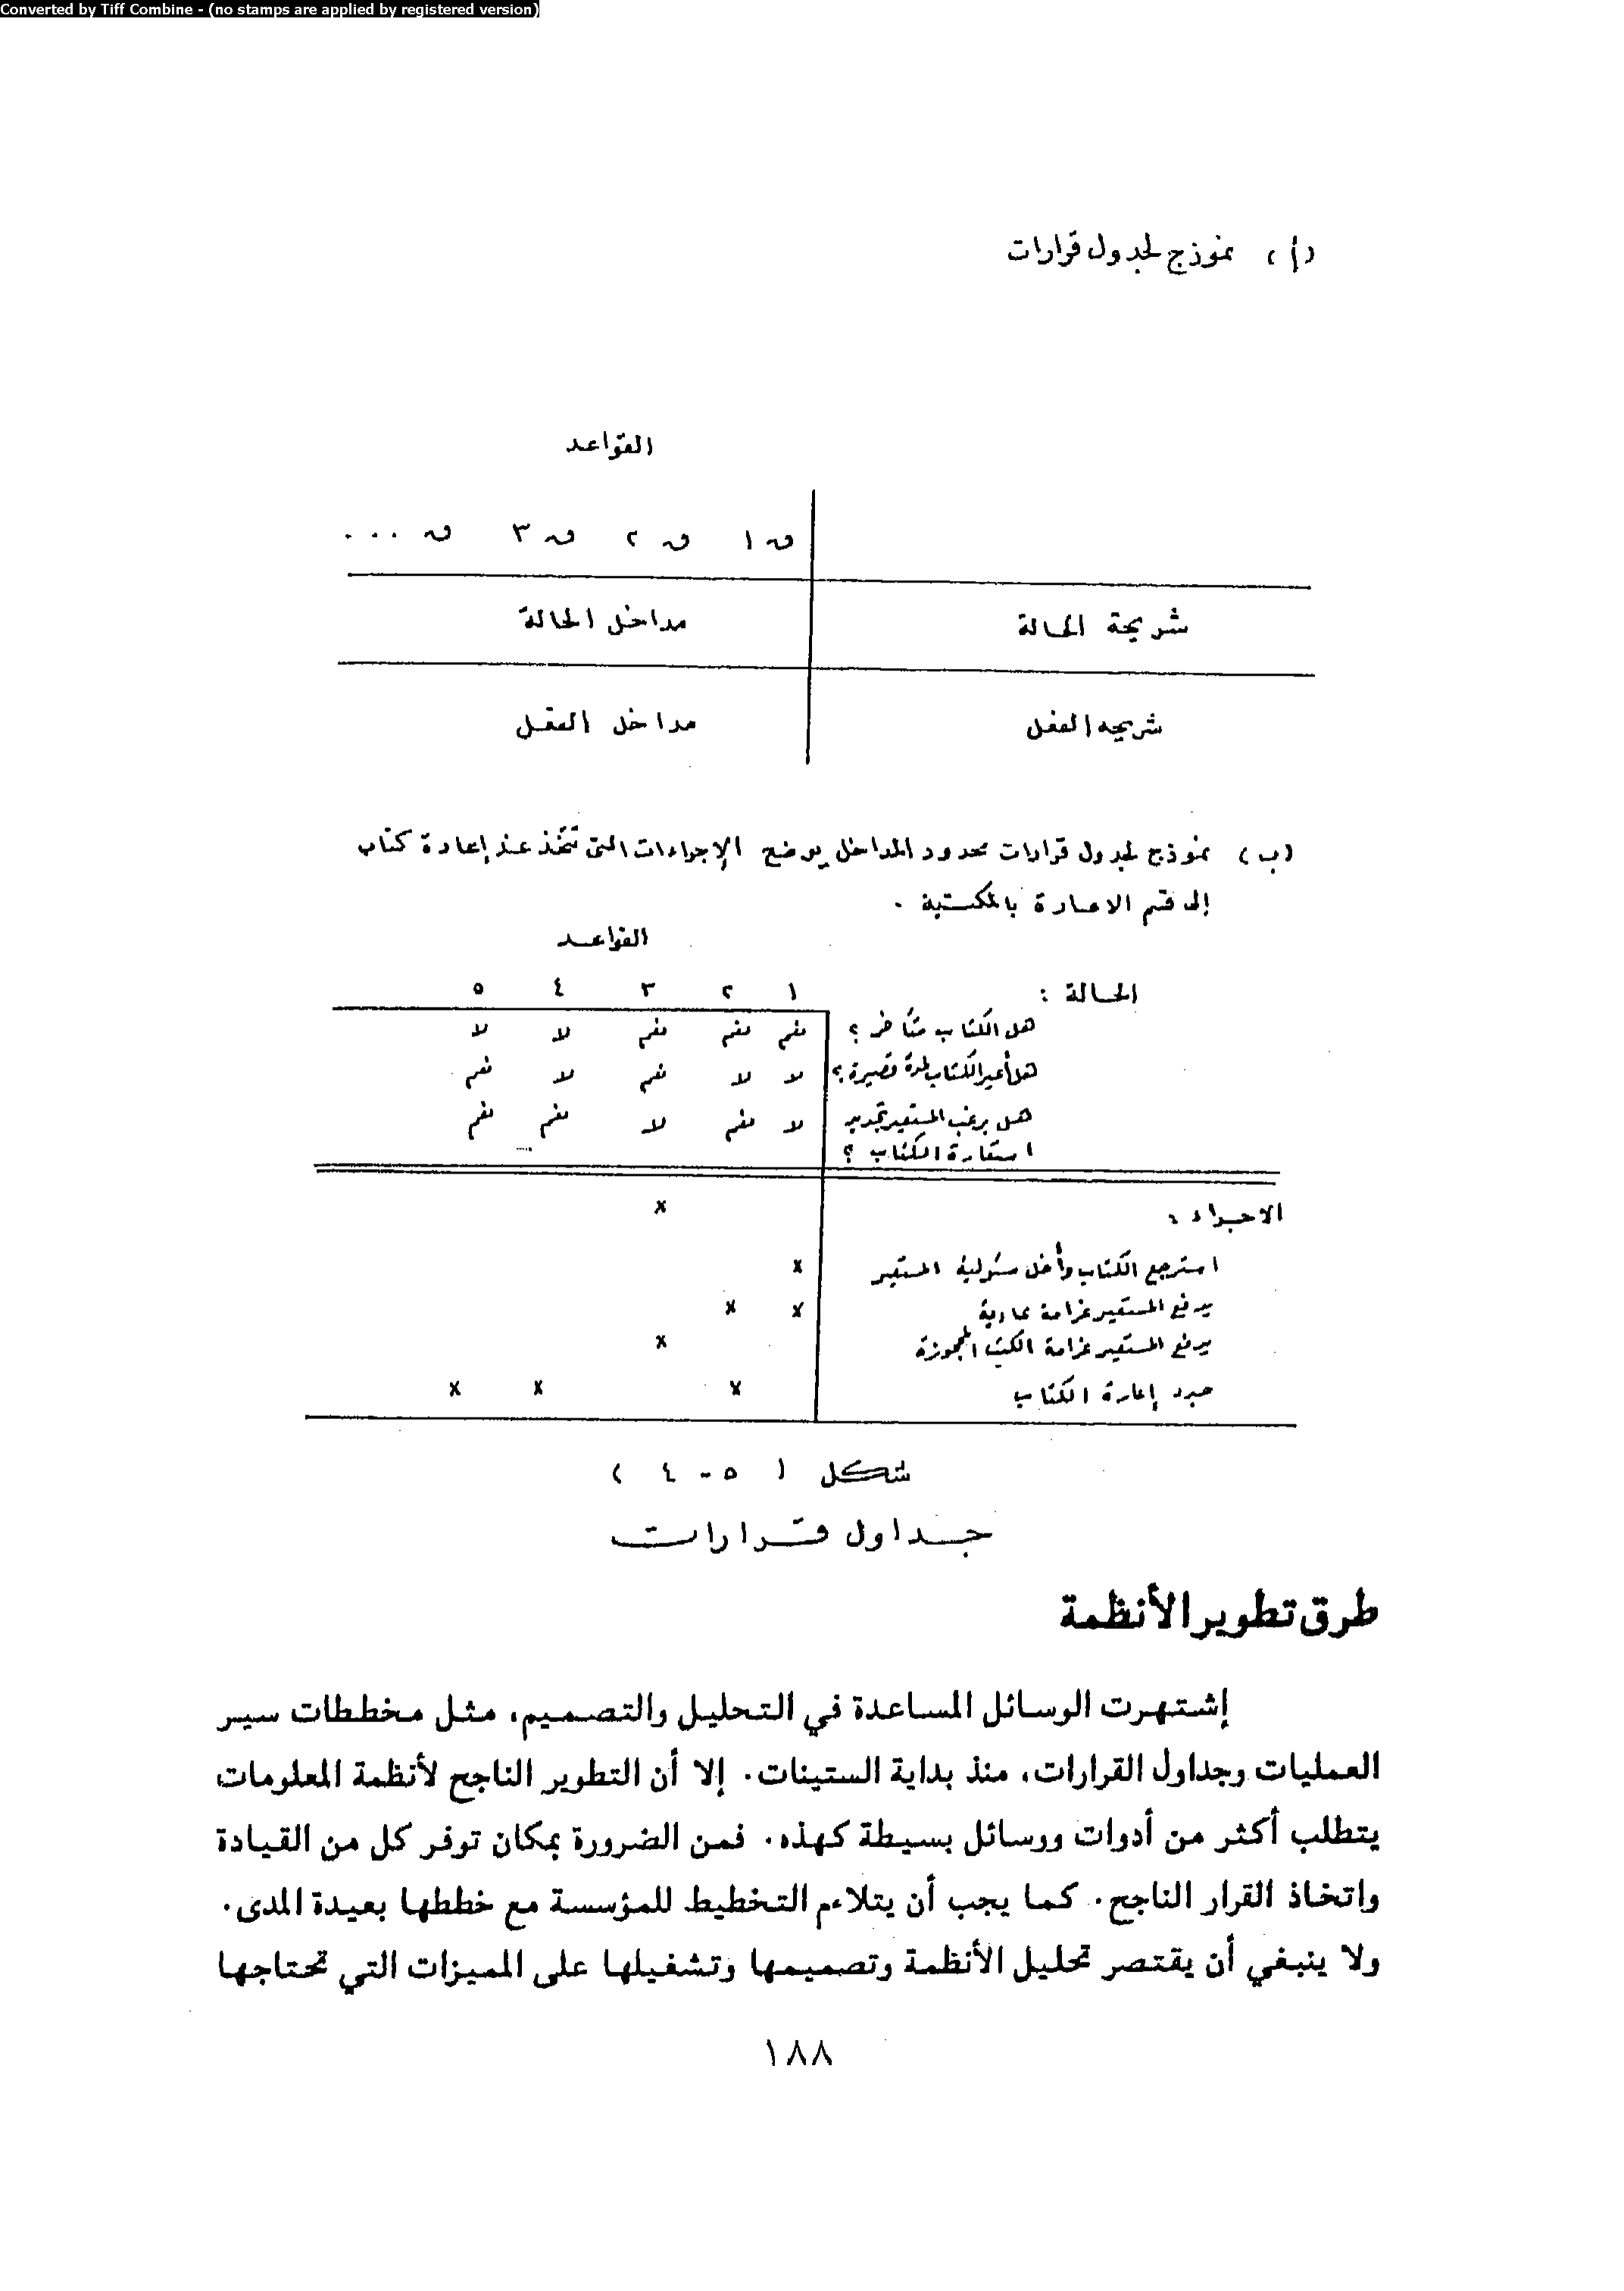 Converted by Tiff Combine - (no stamps are applied by registered version)
(أ) نموذج لجدول قرارات
القواعد
ق ١ ق ٢ ق ٣ ق ...
شريحة الحالة مداخل الحالة
شريحه الفعل مداخل الفعل
(ب) نموذج لجدول قرارات محدود المداخل يوضح الإجراءات التى تتخذ عند إعادة كتاب
إلى قسم الاعارة بالمكتبة .
القواعد
الحالة : ١ ٢ ٣ ٤ ٥
هل الكتاب متأخر ؟ نعم نعم نعم لا لا
هل أعير الكتاب لمدة قصيرة ؟ لا لا نعم لا نعم
هل يرغب المستعير تجديد لا نعم لا نعم نعم
استعارة الكتاب ؟
الاجراء : x
استرجع الكتاب وأخل مسئولية المستعير x
يدفع المستعير غرامة عادية x x
يدفع المستعير غرامة الكتب المحجوزة x
جدد إعارة الكتاب x x x
شكل ( ٥ - ٤ )
جداول قرارات
طرق تطوير الأنظمة
إشتهرت الوسائل المساعدة في التحليل والتصميم، مثل مخططات سير
العمليات وجداول القرارات، منذ بداية الستينات. إلا أن التطوير الناجح لأنظمة المعلومات
يتطلب أكثر من أدوات ووسائل بسيطة كهذه. فمن الضرورة بمكان توفر كل من القيادة
واتخاذ القرار الناجح. كما يجب أن يتلاءم التخطيط للمؤسسة مع خططها بعيدة المدى.
ولا ينبغي أن يقتصر تحليل الأنظمة وتصميمها وتشغيلها على المميزات التي تحتاجها
١٨٨